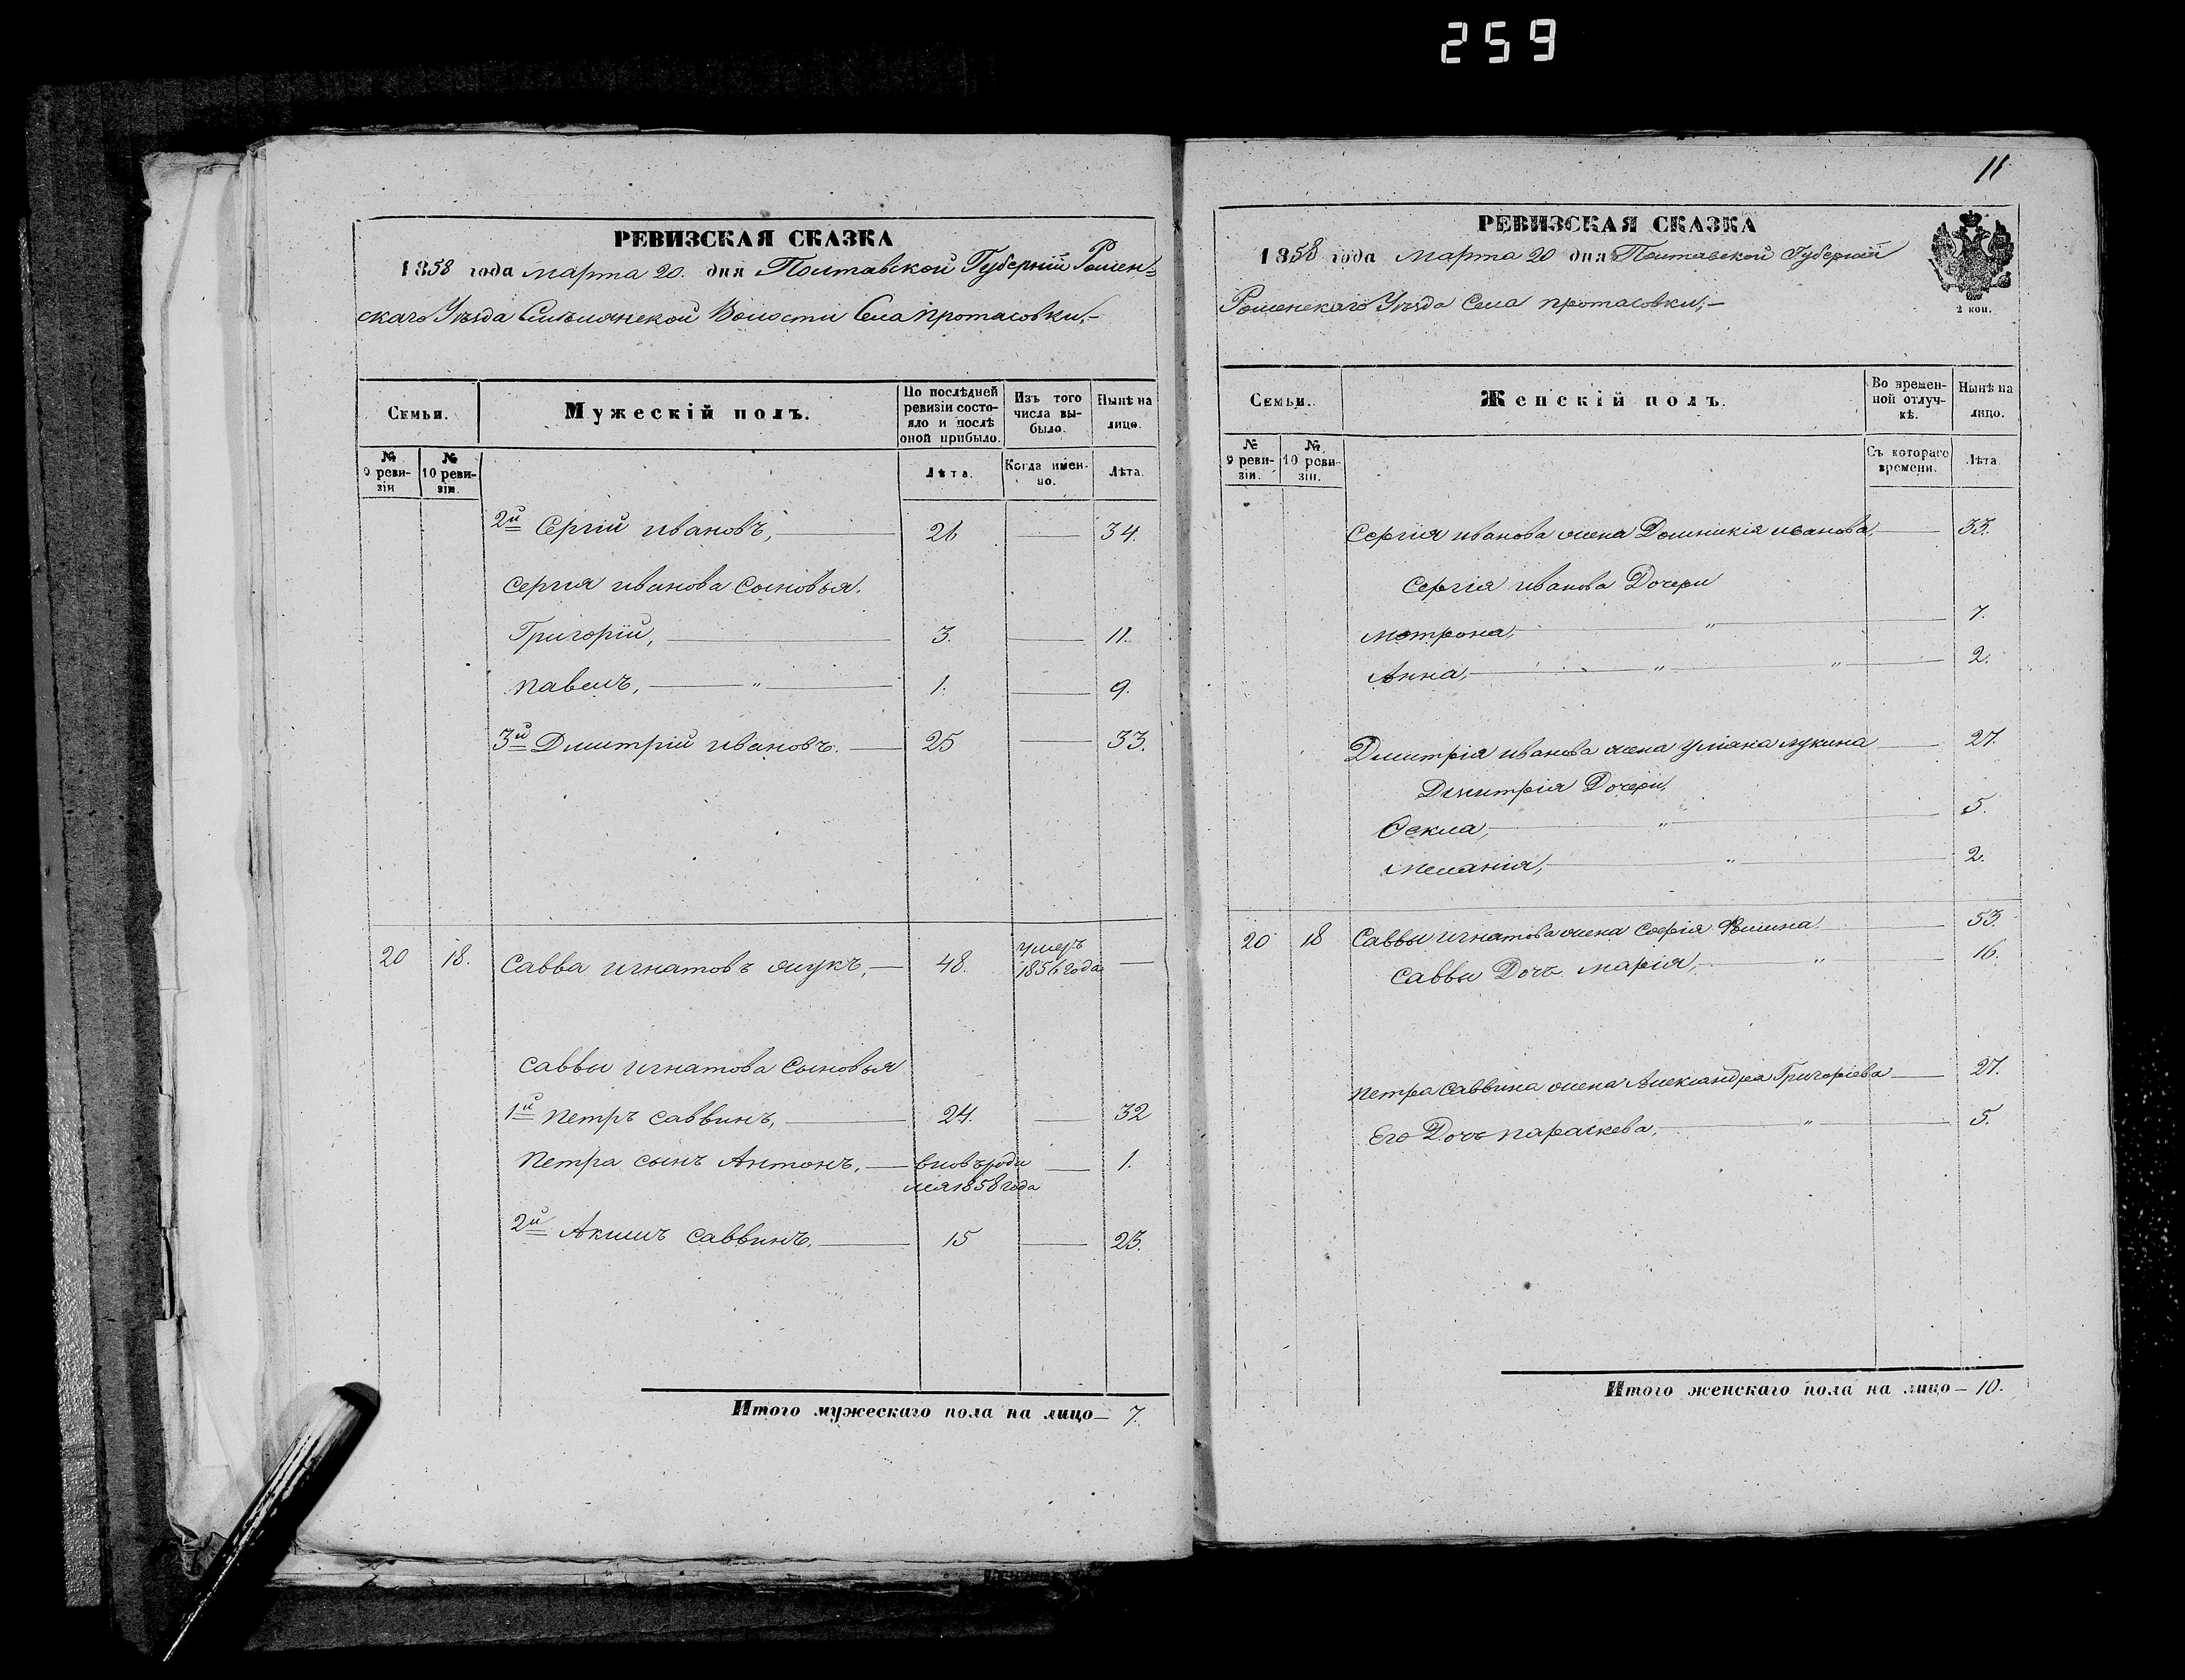 259
РЕВИЗСКАЯ СКАЗКА
1858 года марта 20. дня Полтавской Губерніи Ромен=
скаго Уѣзда Смѣлянской Волости Села Протасовки,-
Семьи.
Мужескій полъ.
По послѣдней ревизіи состояло и послѣ оной прибыло.
Изъ того числа выбыло.
Нынѣ на лицо.
№ 9 ревизіи
№ 10 ревизіи.
Лѣта.
Когда именно.
Лѣта.
2й Сергій Ивановъ, 26 34.
Сергія Иванова Сыновья.
Григорій, 3. 11.
Павелъ, 1. 9.
3й Дмитрій Ивановъ. 25 33.
20 18. Савва Игнатовъ 48. умеръ 1856 года
Саввы Игнатова Сыновья
1й Петръ Саввинъ, 24. 32
Петра сынъ Антонъ, вновь роди 1.
лся 1858 года
2й Акимъ Саввинъ. 15 23.
Итого мужескаго пола на лицо 7.
11
РЕВИЗСКАЯ СКАЗКА
1858 года Марта 20 дня Полтавской Губерніи
Роменскаго Уѣзда Села Протасовки,-
2 коп.
Семьи.
Женскій полъ.
Во временной отлучкѣ.
Нынѣ на лицо.
№ 9 ревизіи.
№ 10 ревизіи.
Съ котораго времени.
Лѣта.
Сергія Иванова жена Домникія Иванова, 33.
Сергія Иванова Дочери
Мотрона, 7.
Анна, 2.
Дмитрія Иванова жена Уліяна Лукина 27.
Дмитрія Дочери,
Ѳекла, 5.
Меланія, 2.
20 18 Саввы Игнатова жена Софія 53.
Саввы Дочь Марія, 16.
Петра Саввина жена Александра Григоріева 27.
Его Дочь Параскева, 5.
Итого женскаго пола на лицо 10.